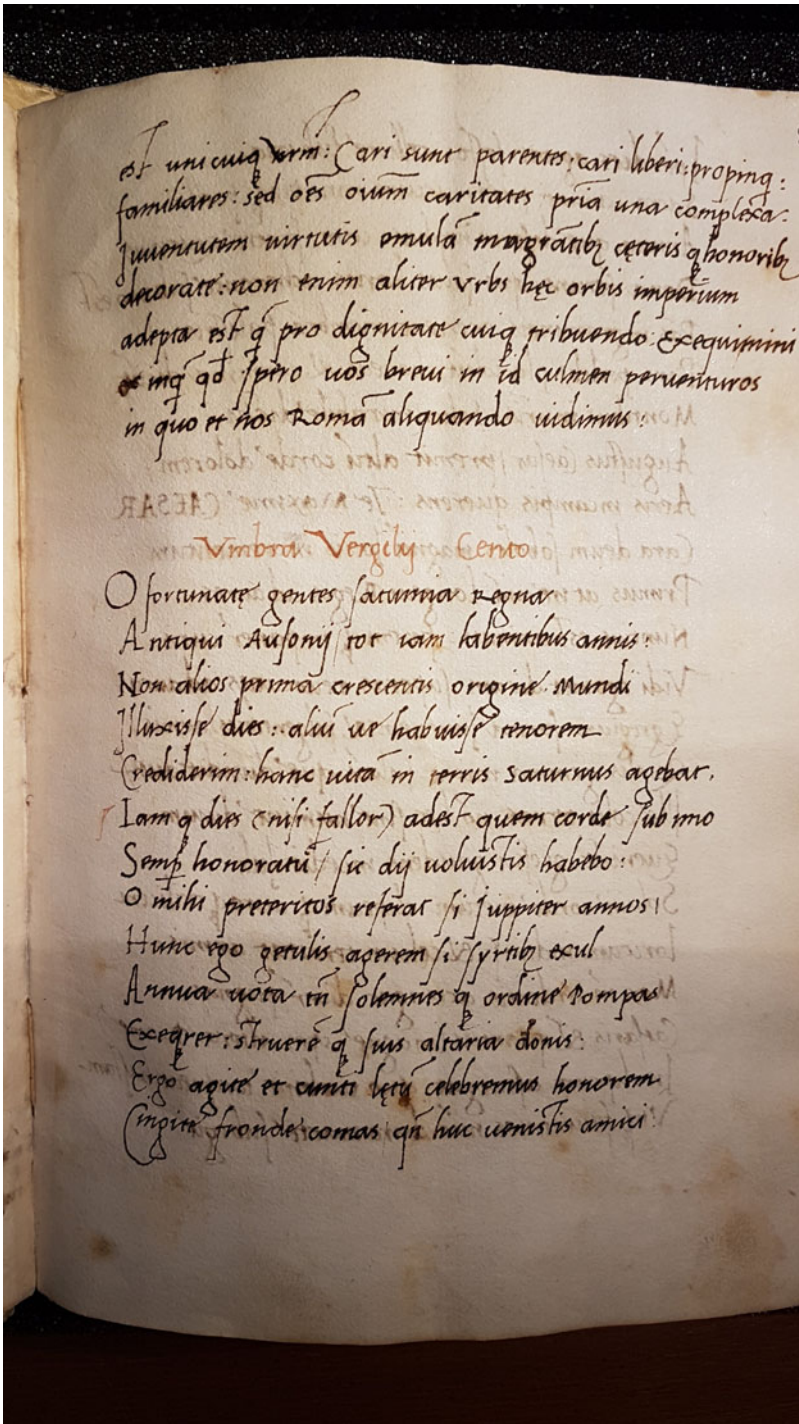 est unicuiq̨ vrm̄: Cari sunt parentes: cari liberi: propinq̨:
familiares: sed oēs oiūm caritates pr̄ia una complexa.
Juventutem virtutis emulā cęteris q̨ honorib;
decorate: non enim aliter vrbs hęc orbis imperium
adepta est q̄ pro dignitate cuiq̨ tribuendo. Exequimini
inq̄ qd̄ spero uos breui in id culmen peruenturos
in quo et nos Romā aliquando uidimus:
Vmbra Vergilij Cento
O fortunatę gentes saturnia Regna
Antiqui Ausonij tot iam labentibus annis:
Non alios prima crescentis origine Mundi
Illuxisse dies: aliū ue habuisse tenorem
Crediderim: hanc uitā in terris Saturnus agebat.
Iam q̨ dies (nisi fallor) adest quem corde sub imo
Semp̱ honoratū / sic dij uoluistis habebo:
O mihi preteritos referat si Juppiter annos!
Hunc ego getulis agerem si syrtib; exul
Annua uota tn̄ solemnes q̨ ordine Pompas
Exeq̨rer: struerē q̨ suis altaria donis:
Ergo agite et cuncti lętū celebremus honorem
Cingite fronde comas qn̄ huc uenistis amici